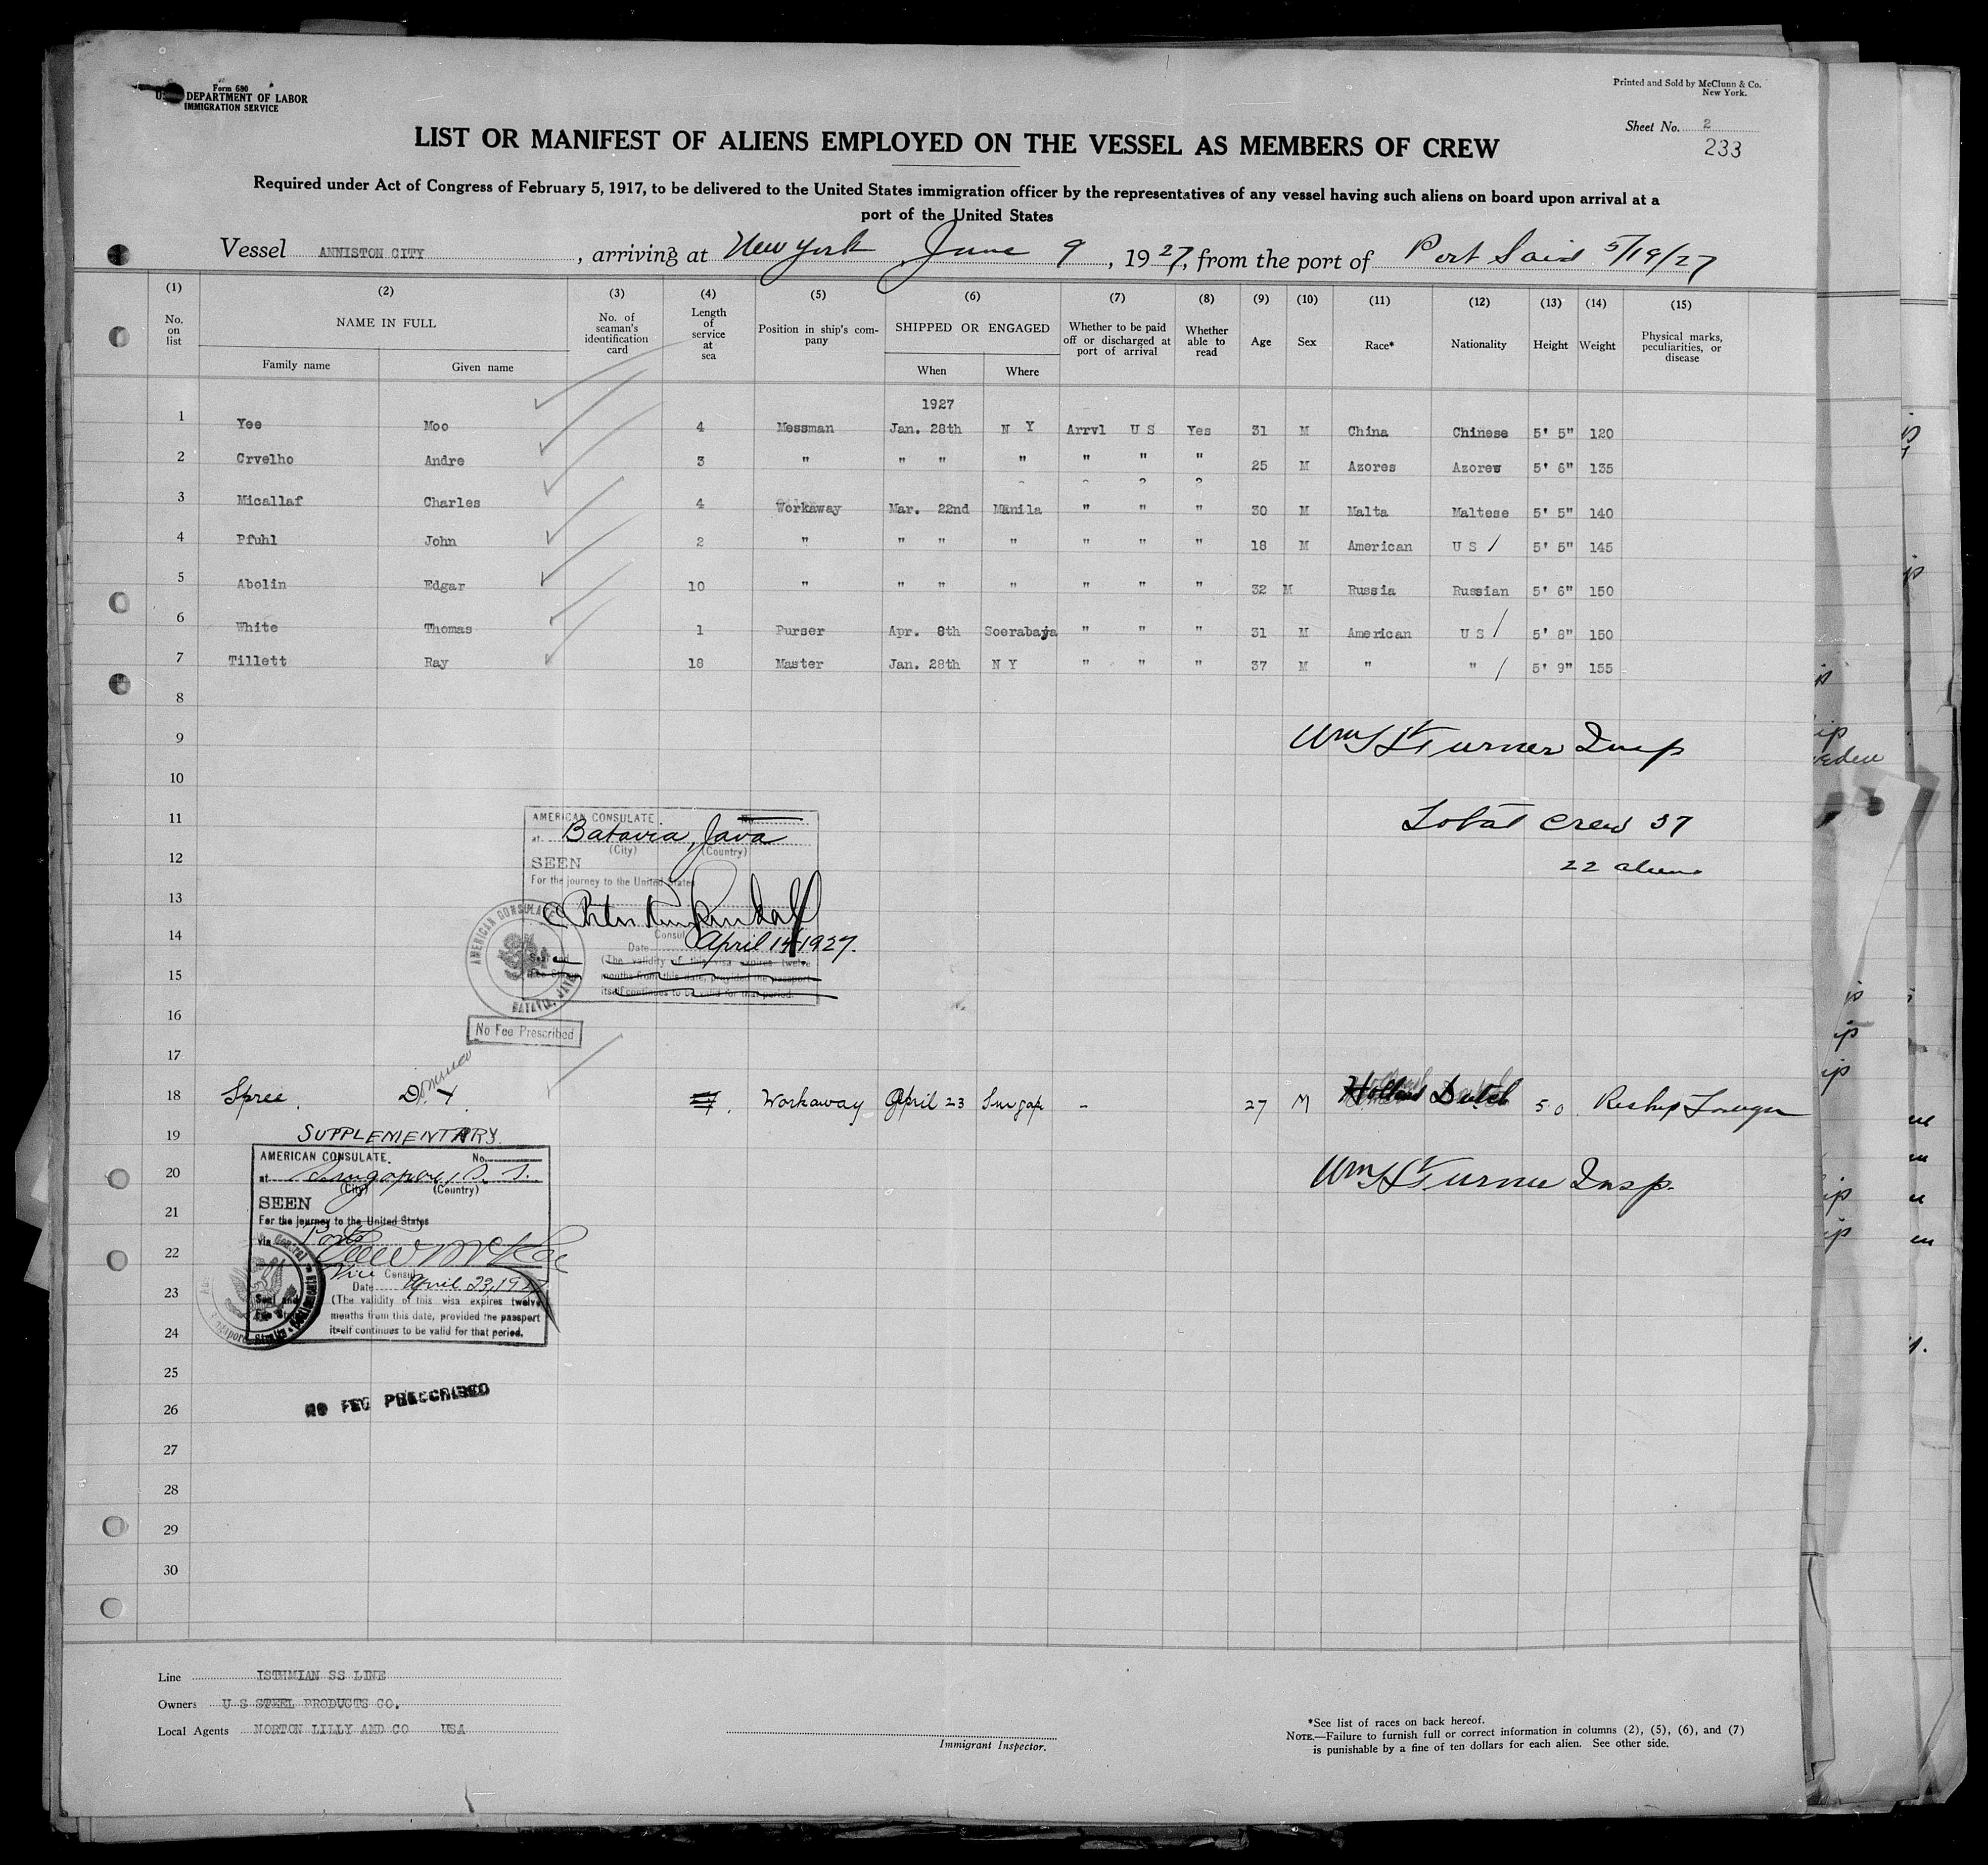 Form 680
DEPARTMENT OF LABOR
IMMIGRATION SERVICE
Printed and Sold by McClunn & Co.
New York.
Sheet No. 2
233
LIST OR MANIFEST OF ALIENS EMPLOYED ON THE VESSEL AS MEMBERS OF CREW
Required under Act of Congress of February 5, 1917, to be delivered to the United States immigration officer by the representatives of any vessel having such aliens on board upon arrival at a
port of the United States
Vessel ANNISTON CITY, arriving at New York, June 9, 1927, from the port of Port Said 5/19/27
(1) (2) (3) (4) (5) (6) (7) (8) (9) (10) (11) (12) (13) (14) (15)
No. on list
NAME IN FULL
Family name Given name
No. of seaman's identification card
Length of service at sea
Position in ship's company
SHIPPED OR ENGAGED
When Where
Whether to be paid off or discharged at port of arrival
Whether able to read
Age
Sex
Race*
Nationality
Height
Weight
Physical marks, peculiarities, or disease
1927
1 Yee Moo 4 Messman Jan. 28th N Y Arrvl U S Yes 31 M China Chinese 5' 5" 120
2 Crvelho Andre 3 " " " " " " " 25 M Azores Azores 5' 6" 135
3 Micallaf Charles 4 Workaway Mar. 22nd Manila " " " 30 M Malta Maltese 5' 5" 140
4 Pfuhl John 2 " " " " " " " 18 M American U S / 5' 5" 145
5 Abolin Edgar 10 " " " " " " " 32 M Russia Russian 5' 6" 150
6 White Thomas 1 Purser Apr. 8th Soerabaja " " " 31 M American U S / 5' 8" 150
7 Tillett Ray 18 Master Jan. 28th N Y " " " 37 M " " / 5' 9" 155
8
9 Turner Insp
10
11 Total Crew 37
AMERICAN CONSULATE No.
at Batavia, Java
(City) (Country)
12 22 aliens
SEEN
For the journey to the United States
13
14
Consul
Date April 14 1927.
(The validity of this visa expires twelve
15
months from this date, provided the passport
itself continues to be valid for that period.
AMERICAN CONSULATE
BATAVIA, JAVA
16
No Fee Prescribed
17
18 Spree. D. Workaway April 23 Singap - 27 M Holland Dutch 5 0
19
SUPPLEMENTARY.
AMERICAN CONSULATE. No.
20
at Singapore, S. S.
(City) (Country)
Turner Insp.
SEEN
21
For the journey to the United States
via Ports
22
Vice Consul
Date April 23, 1927
23
Seal and
(The validity of this visa expires twelve
months from this date, provided the passport
24
itself continues to be valid for that period.
25
NO FEE PRESCRIBED
26
27
28
29
30
Line ISTHMIAN SS LINE
Owners U S STEEL PRODUCTS CO.
Local Agents NORTON LILLY AND CO USA
Immigrant Inspector.
*See list of races on back hereof.
NOTE.—Failure to furnish full or correct information in columns (2), (5), (6), and (7)
is punishable by a fine of ten dollars for each alien. See other side.